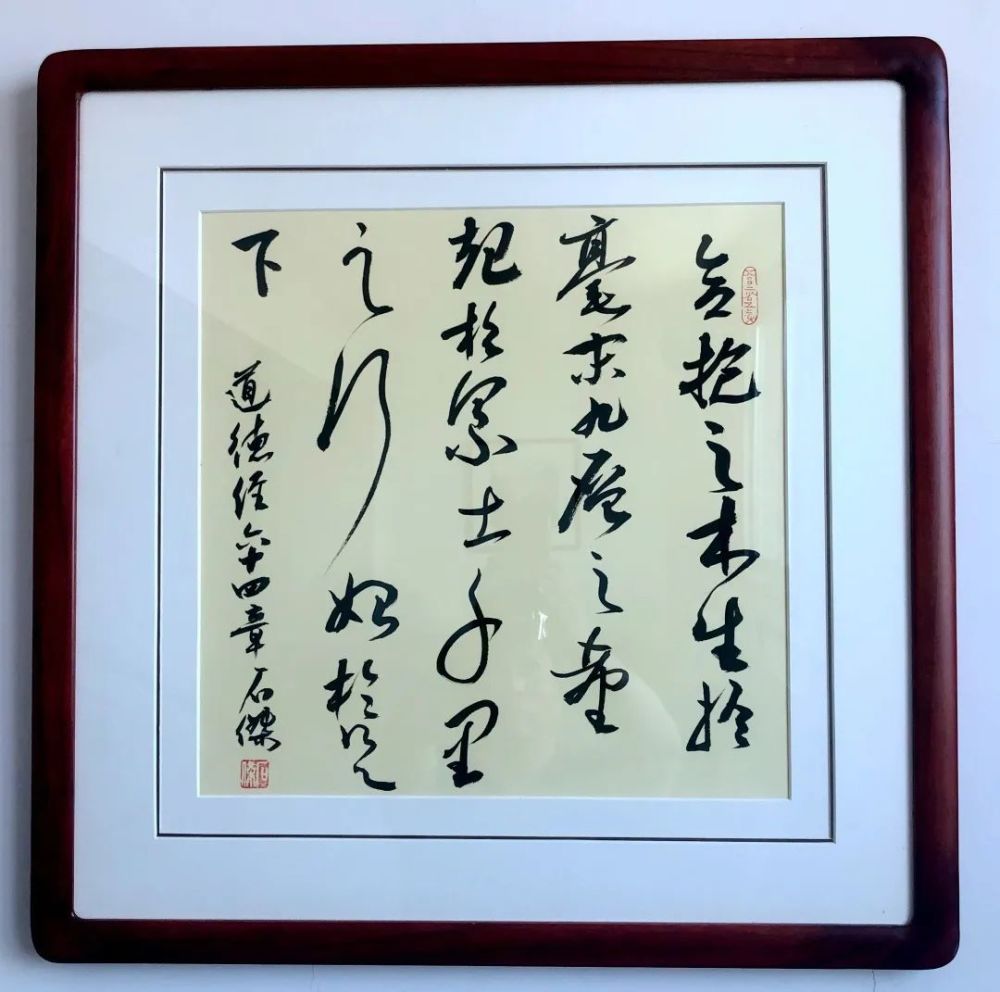 合抱之木生於
毫末九层之台
起於累土千里
之行始於足
下
道德经六十四章石傑
石傑